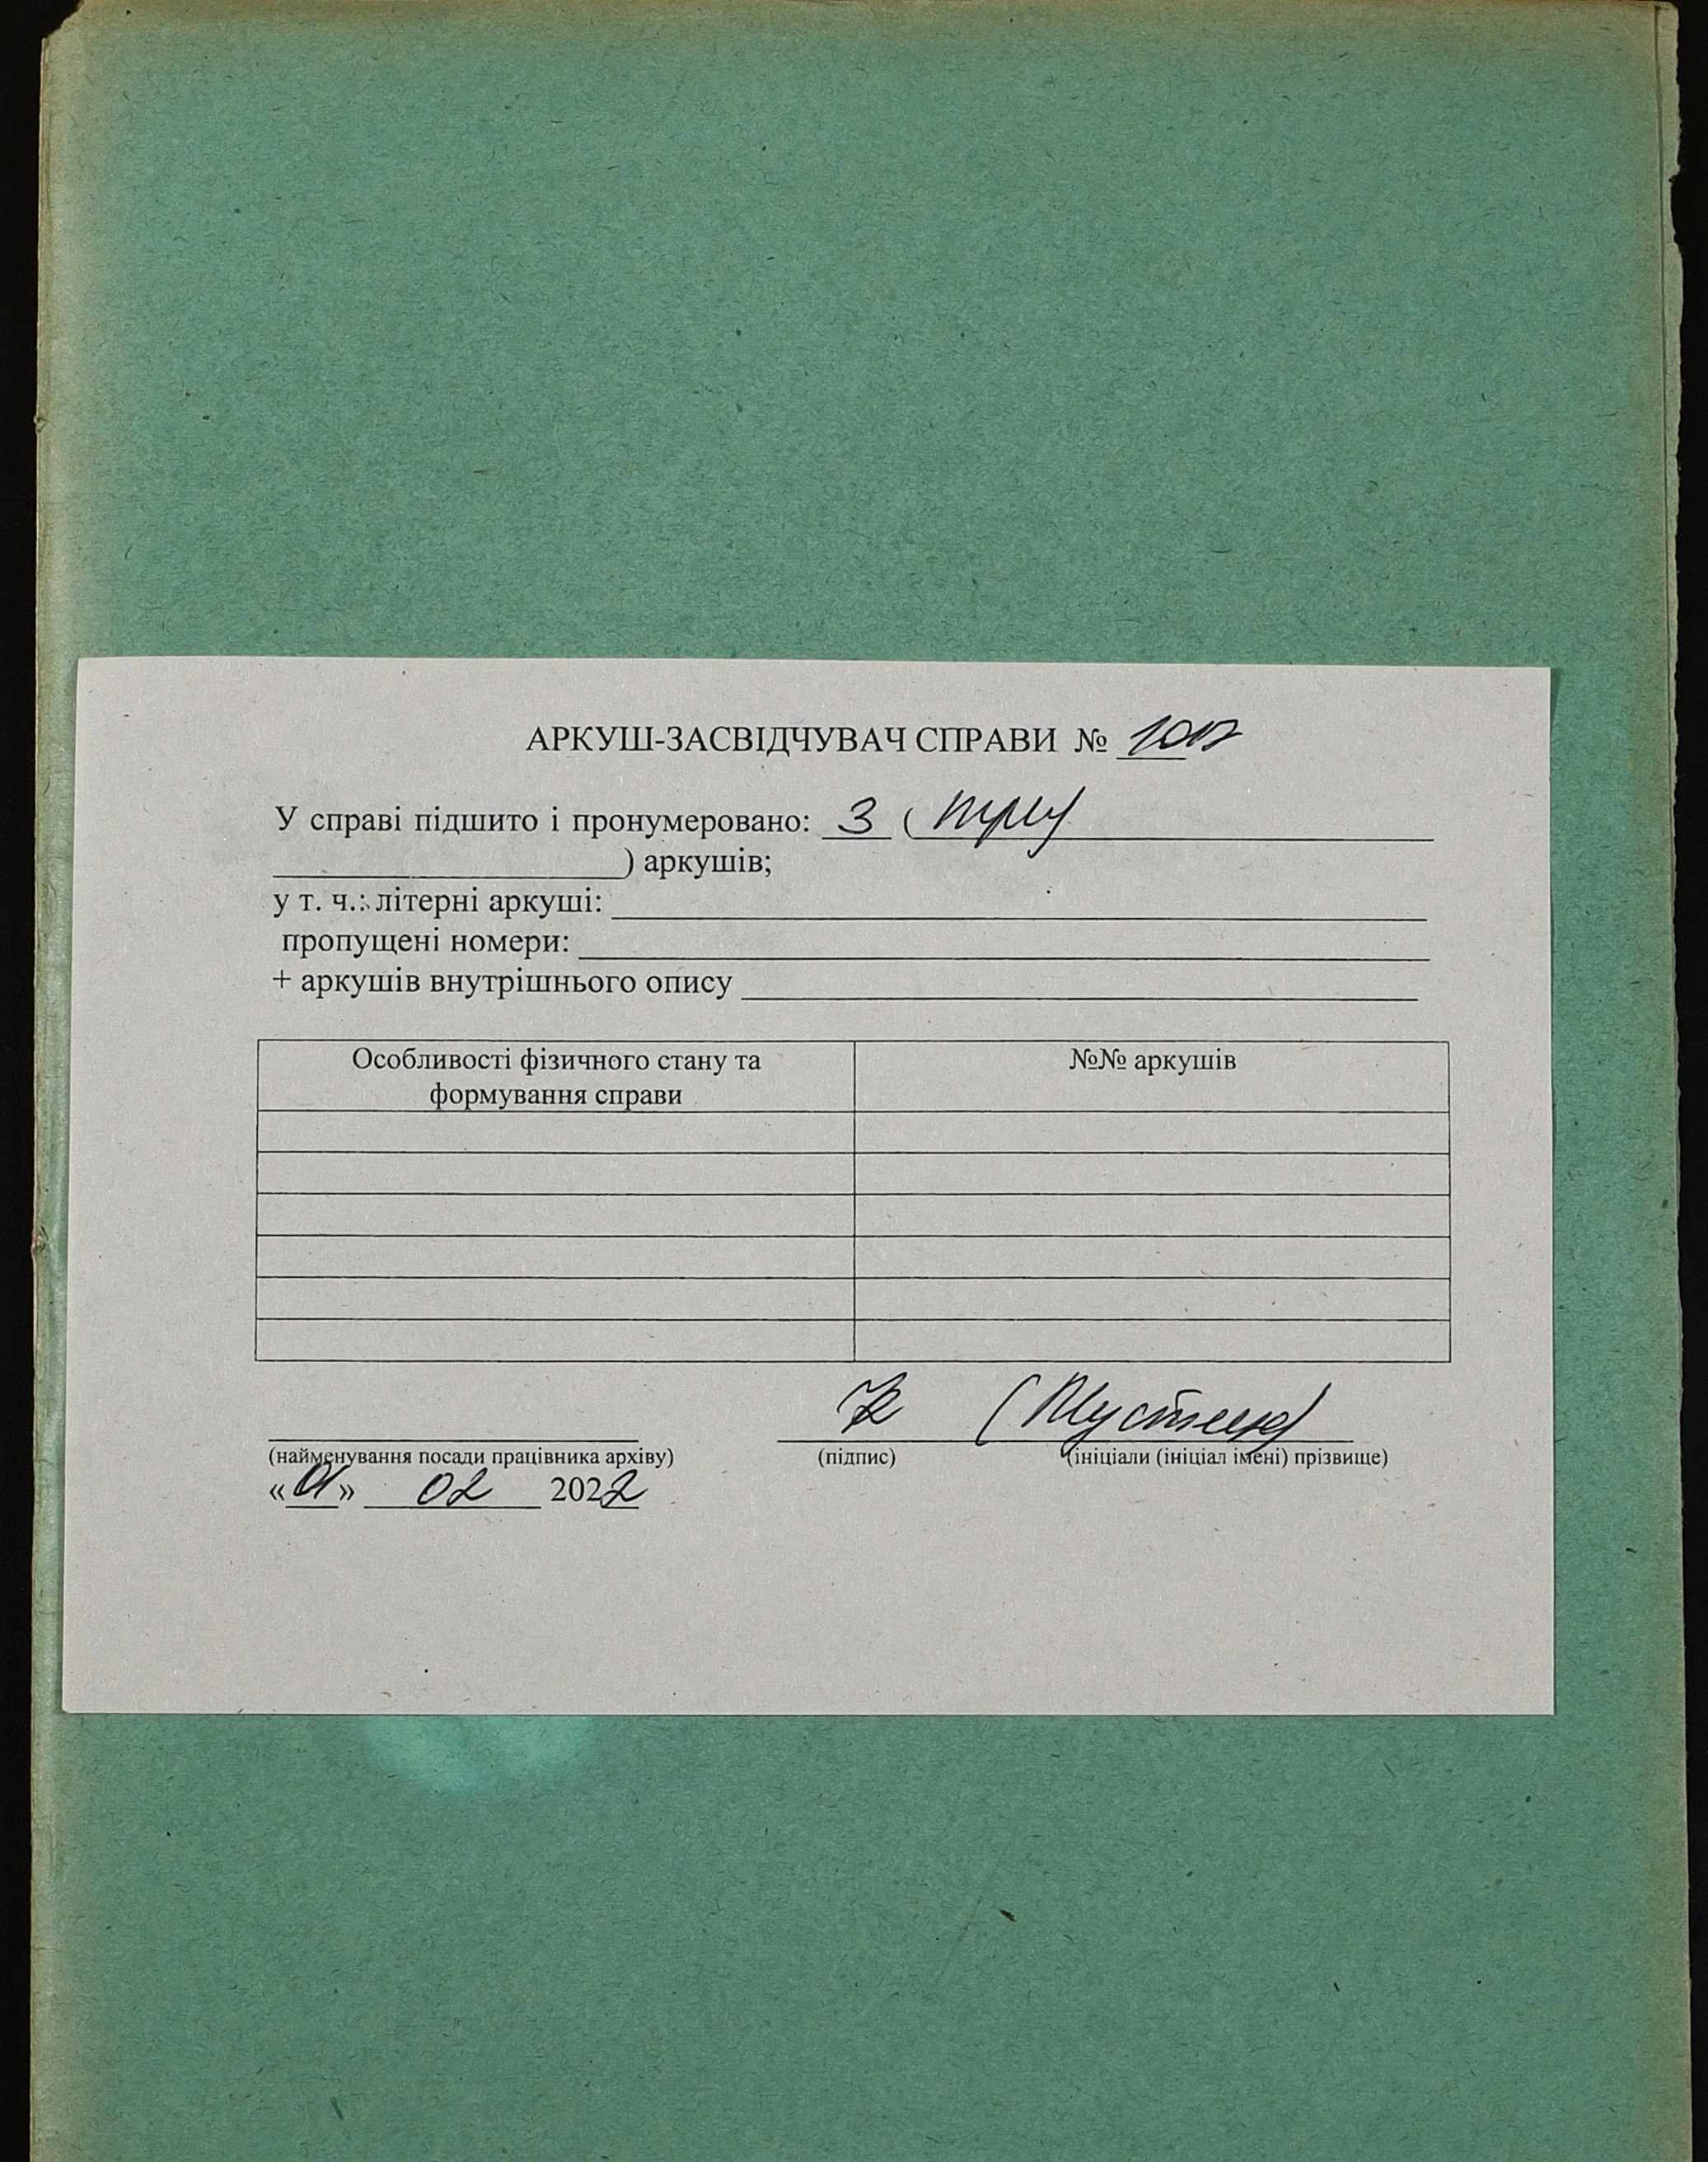 АРКУШ-ЗАСВІДЧУВАЧ СПРАВИ №
У справі підшито і пронумеровано: 3 ( три
) аркушів;
у т. ч.: літерні аркуші:
пропущені номери:
+ аркушів внутрішнього опису
Особливості фізичного стану та
формування справи
№№ аркушів
(найменування посади працівника архіву)
(підпис)
(ініціали (ініціал імені) прізвище)
«01» 02 2022